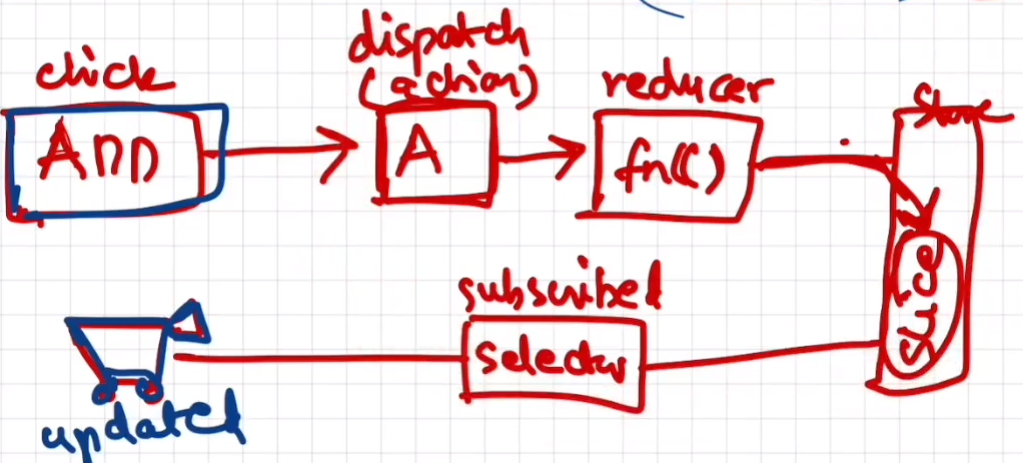 click
dispatch
(action)
reducer
Store
ADD
A
fn()
slice
subscribed
selector
updated